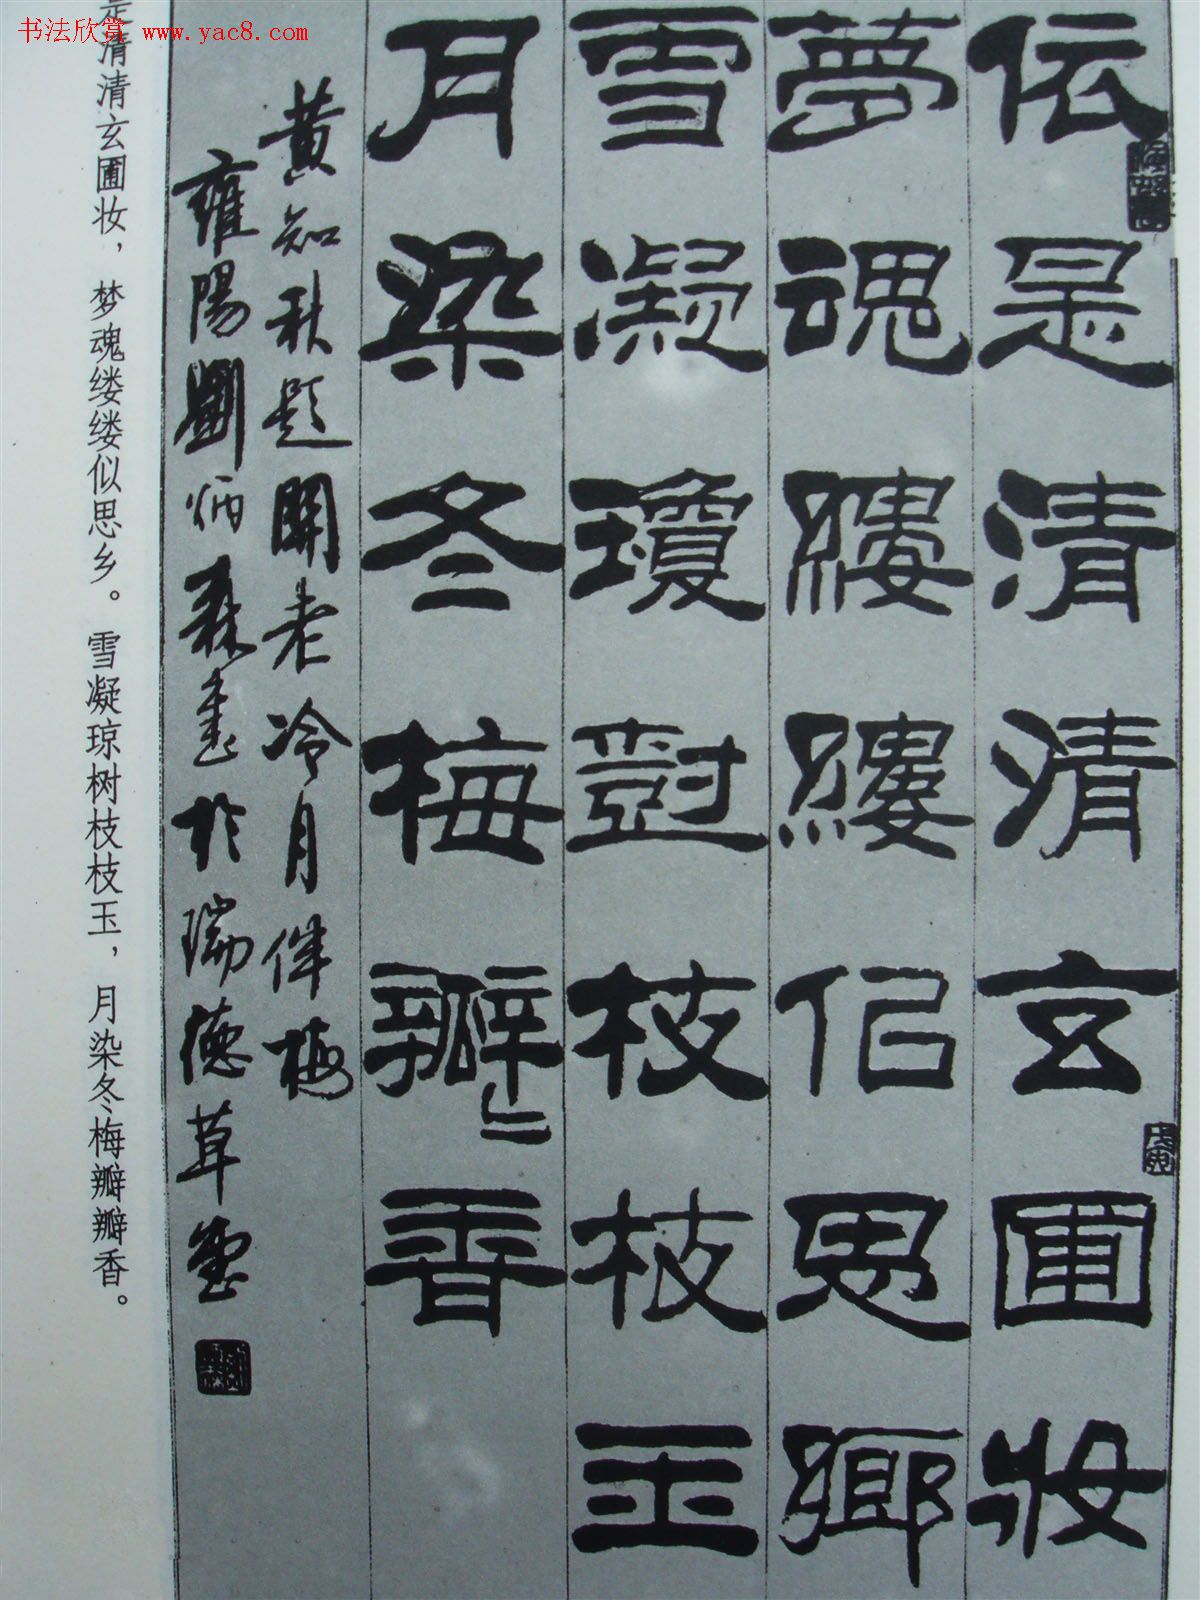 书法欣赏 www.yac8.com
依是清清玄圃妆
夢魂縷縷佀思鄉
雪凝瓊樹枝枝玉
月染冬梅瓣〻香
黄知秋題關老冷月伴梅
雍陽劉炳森書於瑞德草堂
是清清玄圃妆，梦魂缕缕似思乡。雪凝琼树枝枝玉，月染冬梅瓣瓣香。